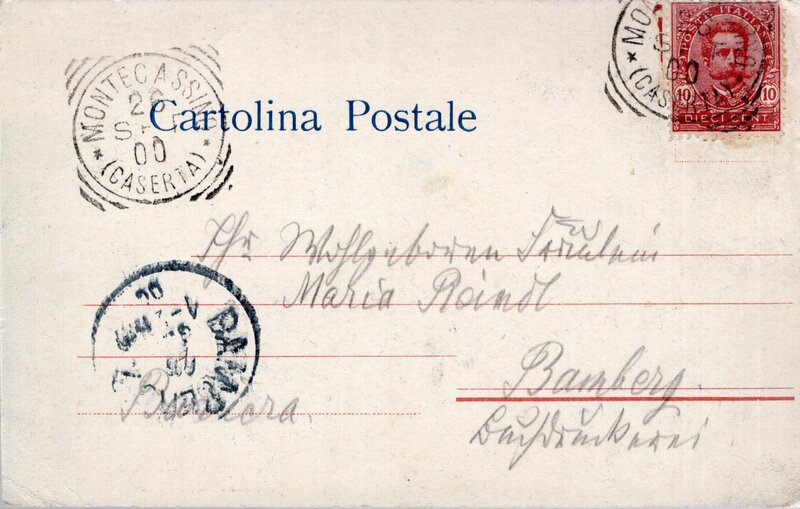 MONTECASSINO
26
00
(CASERTA)
MO
00
(CASERTA)
POSTE ITALIANE
10 10
DIECI CENT
Cartolina Postale
Ihr Wohlgeboren Fräulein
Maria Reindl
Bamberg.
Buchdruckerei
Baviera.
BAMBERG
00